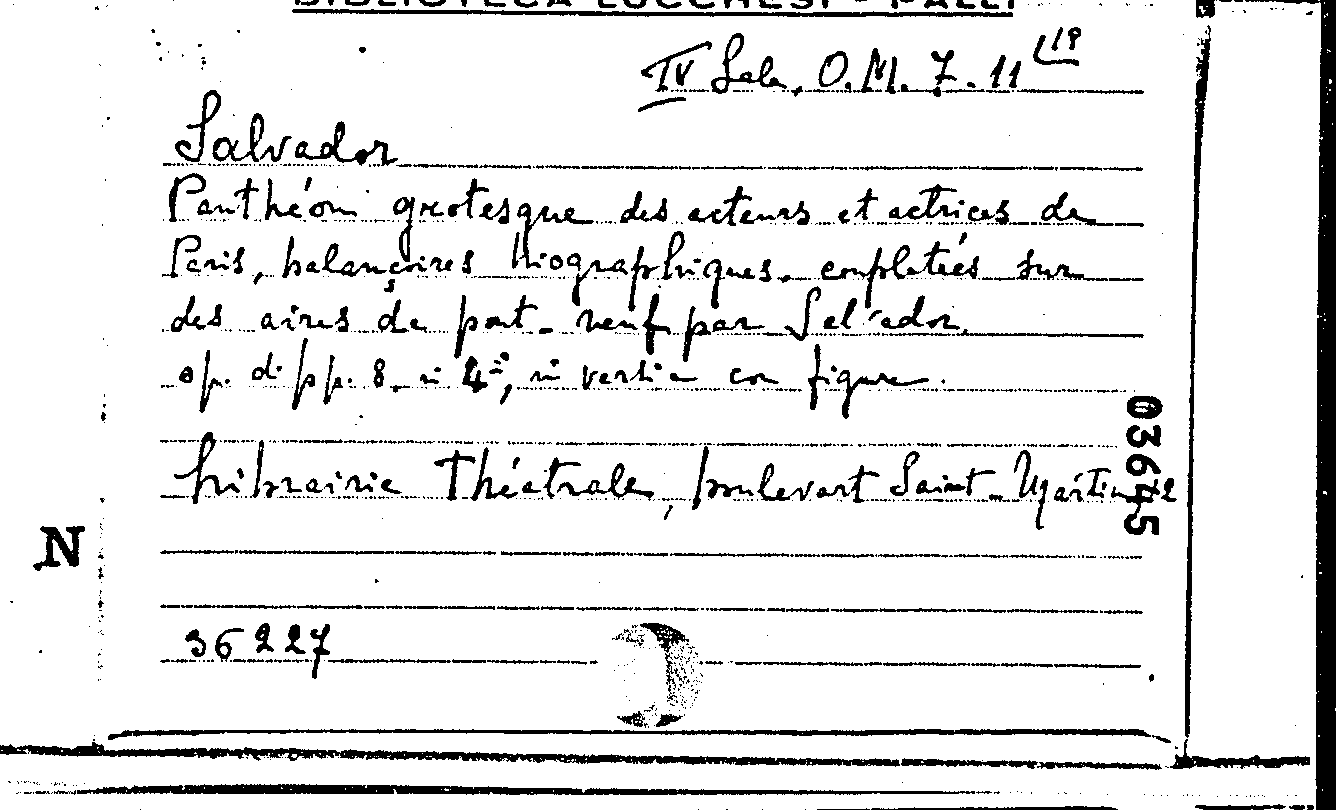 BIBLIOTECA LUCCHESI - PALLI
IV Sala. O.M. 7. 11 19
Salvador
Panthéon grotesque des acteurs et actrices de
Paris, balançoires biographiques. complétées sur
des aires de pont-neuf par Salvador.
op. di pp. 8. in 4º, in versi e con figure.
Librairie Théatrale, boulevart Saint-Martin, 12
03645
N
36227